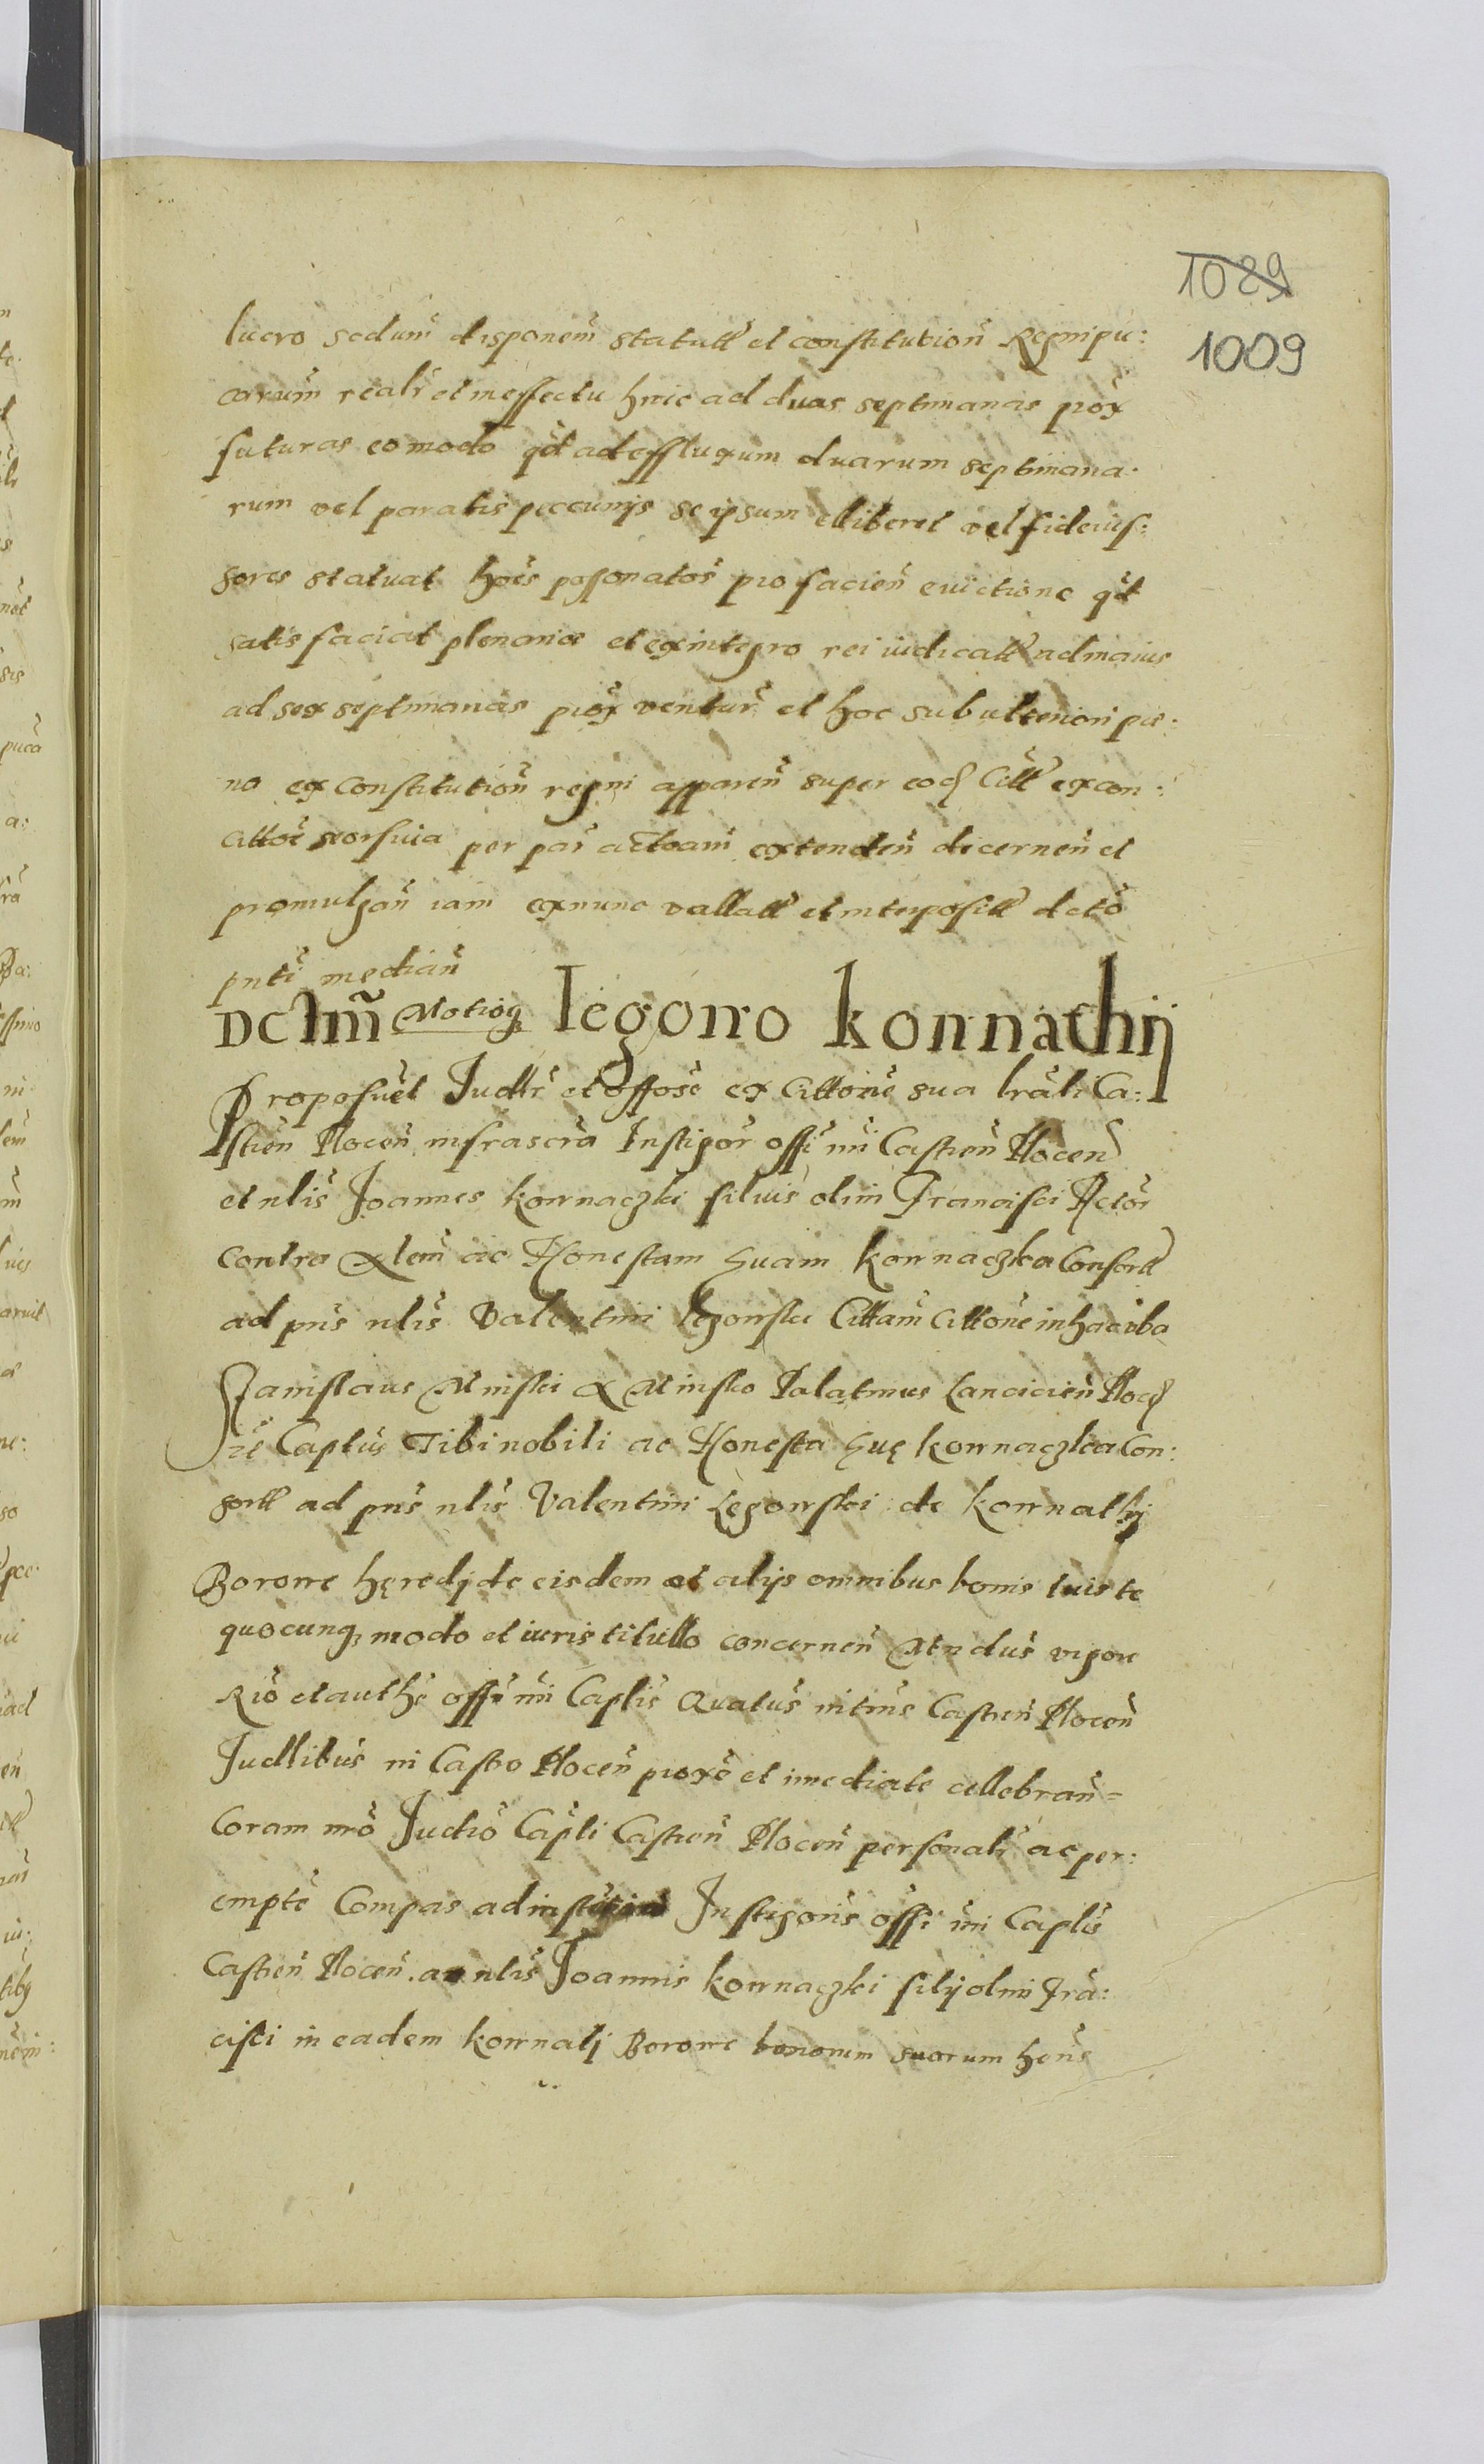 1029
1009
lucro secdum disponem statutt et constitution Regni pu:
carum reali et in effectu hinc ad duas septimanas prox
futuras eo modo qd ad effluxum duarum septimana
rum vel paratis peccunijs se ipsum elliberet vel fideius:
sores statuat hoes possonatos pro facien evictione qd
satisfaciat plenarie et ex integro rei iudicatt ad maius
ad sex septimanas prox ventur et hoc sub ulteriori pae:
na ex Constitution regni apparen super eod Citt ex con:
per par actoam extenden decernen et
promulgan iam ex nunc vallatt et interposit dcto
pnti median
Dctm Motioq Iegowo kownathij
Proposuet Judlr et offose ex Cittone sua lrali Ca:
strien Plocen infrascra Instigor offi nri Castren Plocen
et nlis Joannes kownaczki filius olim Francisci Actor
contra nlem ac Honestam hvam kownaczka Consortt
ad pns nlis Valentini legowski Cittam Cittone in haec vba
Stanislaus Minski de Minsko Palatinus Lancicien Ploc
zc Captus Tibi nobili ac Honesta hvę kownaczka Con:
sortt ad pns nlis Valentini Legowski de kownathij
Borowe hęredj de eisdem et alijs omnibus bonis tuis te
quocunq modo et iuris titullo concernen Mndus vigore
Rio et authe offi nri Caplis Quatus in tmis Castren Plocen
Judlibus in Castro Plocen proxe et imediate cellebran=
Coram nro Judio Capli Castren Plocen personali ac per:
empte Compas ad Instigoris offi nri Caplis
Castren Plocen ac nlis Joannis kownaczki filij olim Fra:
cisci in eadem kownatj Borowe bonorum suorum hens